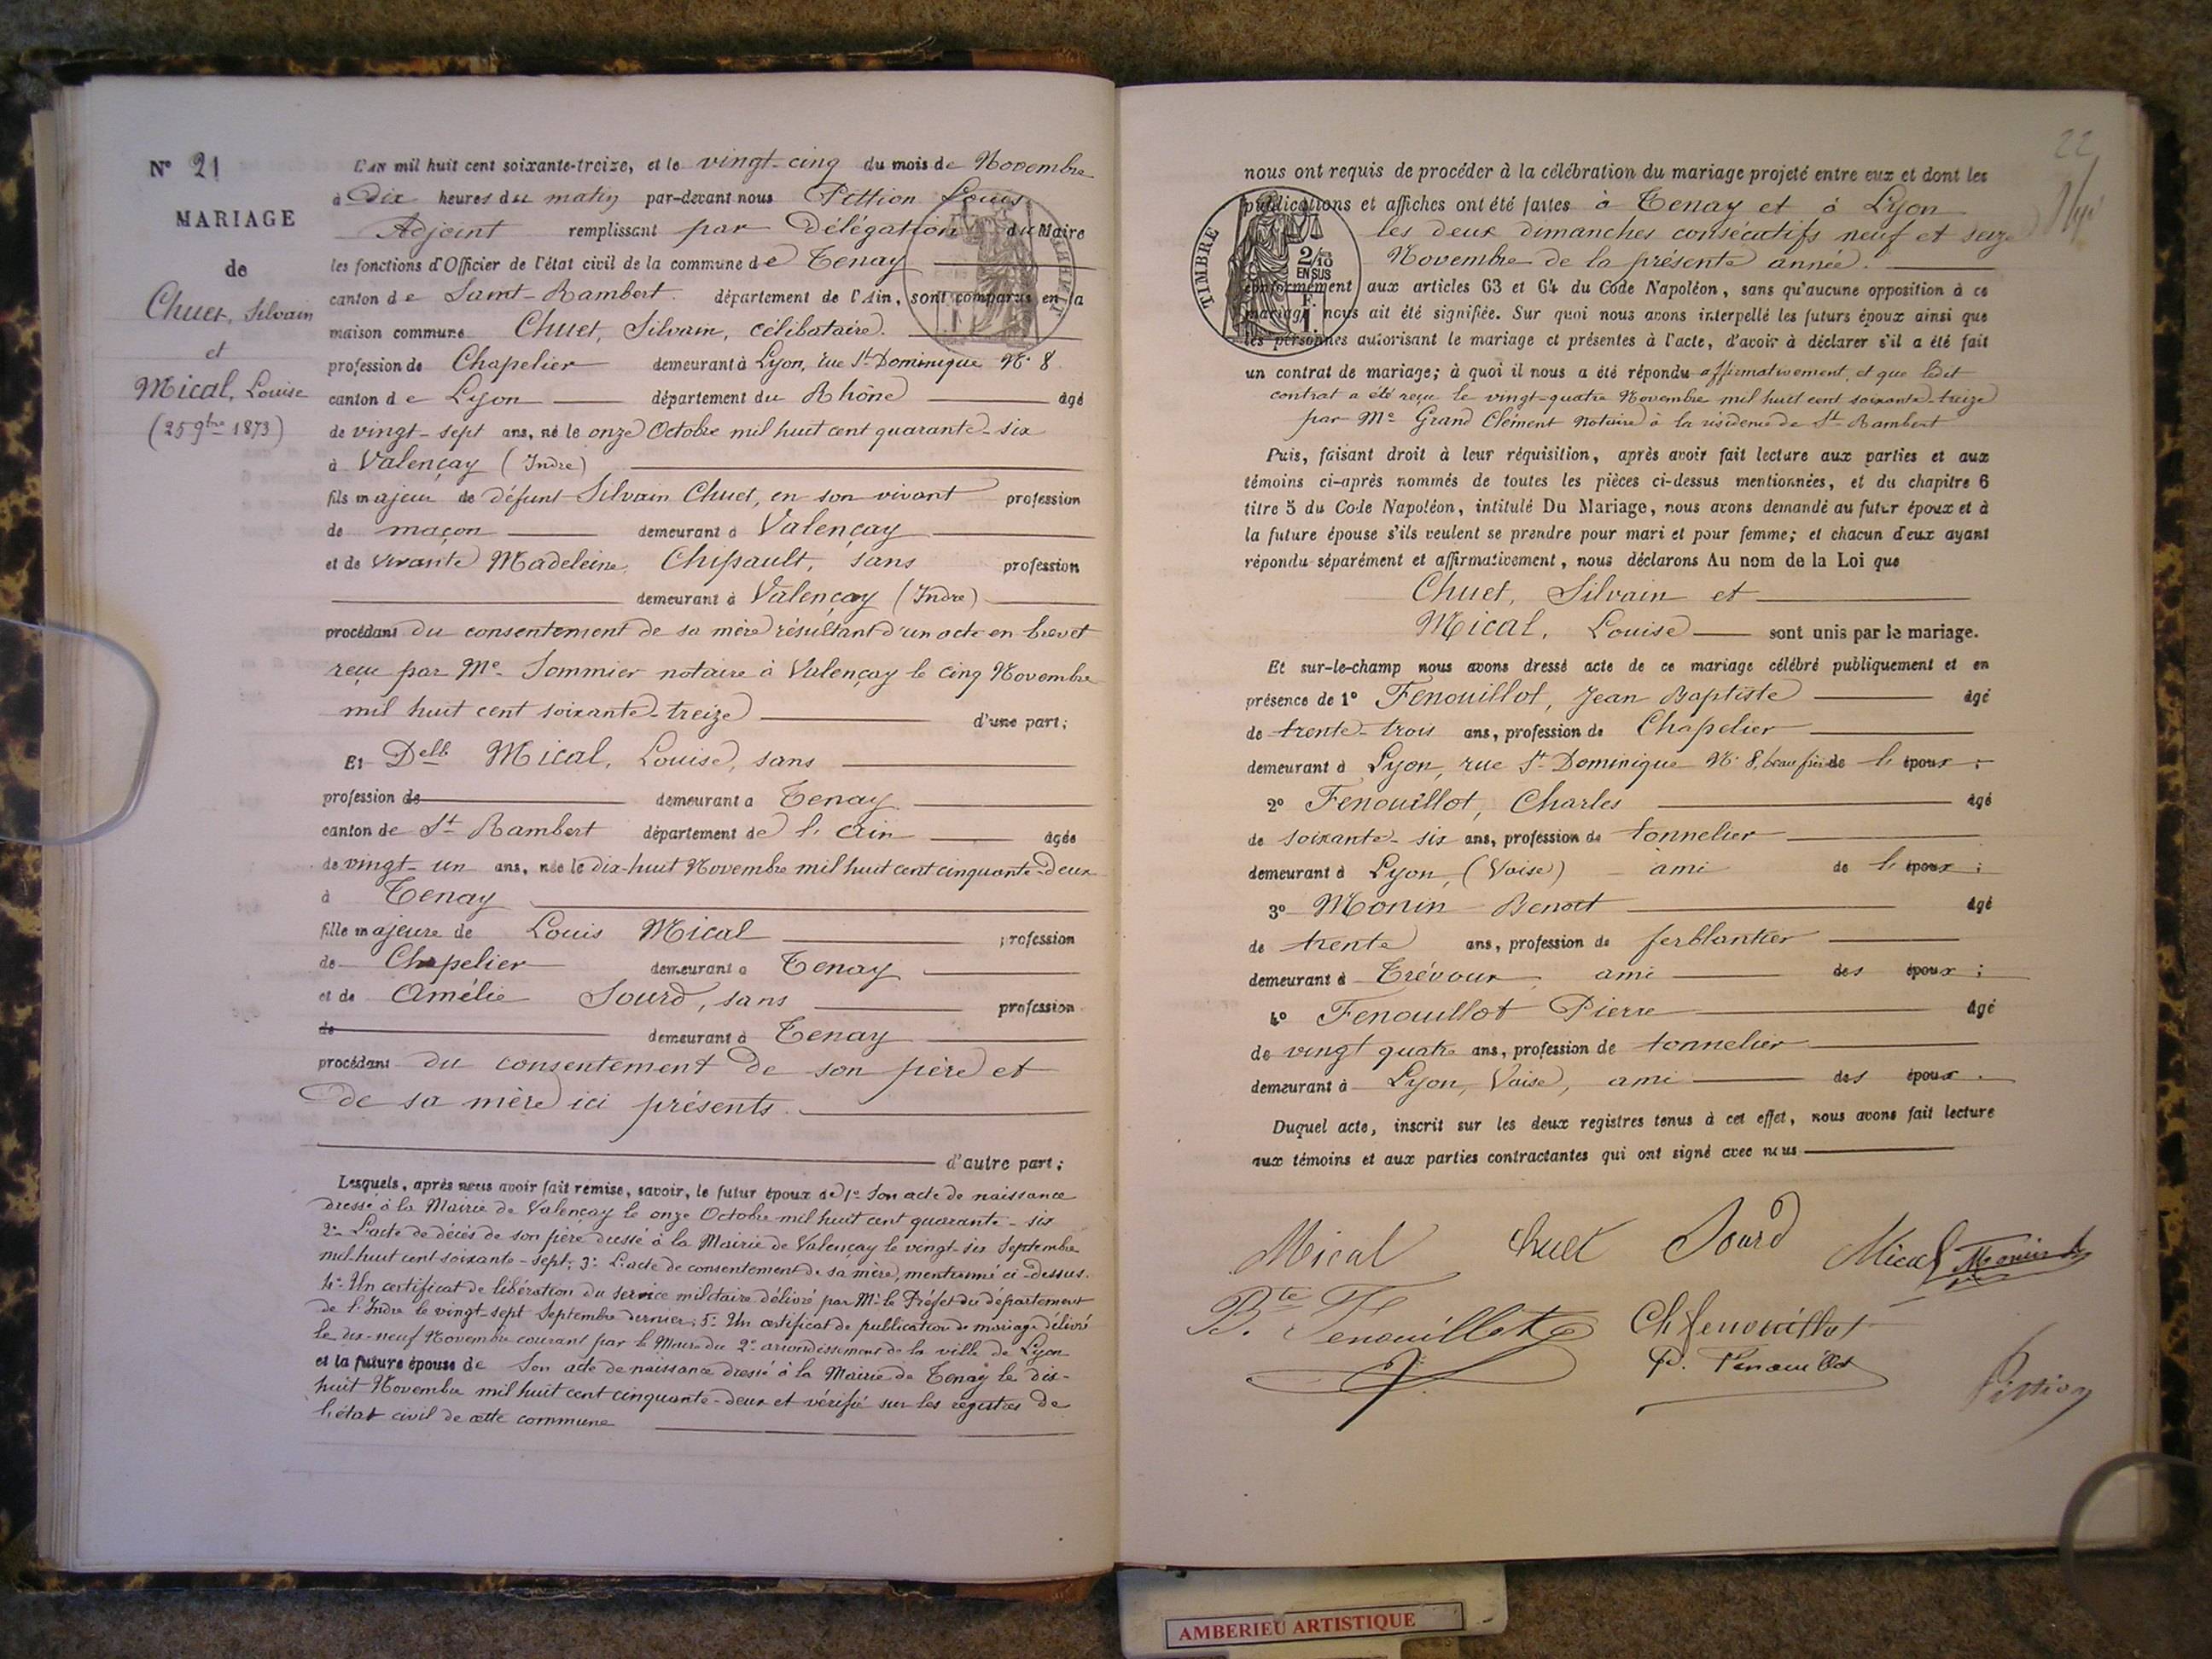 N° 21
MARIAGE
de
Chuet, Silvain
et
Mical, Louise
(25 9bre 1873)
L'AN mil huit cent soixante-treize, et le vingt-cinq du mois de Novembre
à Dix heures du matin par-devant nous Pittion Louis
Adjoint remplissant par Délégation du Maire
les fonctions d'Officier de l'état civil de la commune de Tenay
canton de Saint-Rambert département de l'Ain, sont comparus en la
maison commune Chuet, Silvain, célibataire.
profession de Chapelier demeurant à Lyon, rue St Dominique N° 8
canton de Lyon département du Rhône âgé
de vingt-sept ans, né le onze Octobre mil huit cent quarante-six
à Valençay (Indre)
fils majeur de défunt Silvain Chuet, en son vivant profession
de maçon demeurant à Valençay
et de vivante Madeleine Chipault, sans profession
demeurant à Valençay (Indre)
procédant du consentement de sa mère résultant d'un acte en brevet
reçu par Me Sommier notaire à Valençay le cinq Novembre
mil huit cent soixante-treize d'une part;
Et Delle Mical, Louise, sans
profession de demeurant à Tenay
canton de St Rambert département de l'Ain âgée
de vingt-un ans, née le dix-huit Novembre mil huit cent cinquante-deux
à Tenay
fille majeure de Louis Mical profession
de Chapelier demeurant à Tenay
et de Amélie Sourd, sans profession
de demeurant à Tenay
procédant du consentement de son père et
de sa mère ici présents.
d'autre part;
Lesquels, après nous avoir fait remise, savoir, le futur époux de 1° Son acte de naissance
dressé à la Mairie de Valençay le onze Octobre mil huit cent quarante-six
2° L'acte de décès de son père dressé à la Mairie de Valençay le vingt-six Septembre
mil huit cent soixante-sept; 3° L'acte de consentement de sa mère, mentionné ci-dessus.
4° Un certificat de libération du service militaire délivré par Mr le Préfet du département
de l'Indre le vingt-sept Septembre dernier; 5° Un certificat de publication de mariage délivré
le dix-neuf Novembre courant par le Maire du 2e arrondissement de la ville de Lyon
et la future épouse de Son acte de naissance dressé à la Mairie de Tenay le dix-
huit Novembre mil huit cent cinquante-deux et vérifié sur les registres de
l'état civil de cette commune
22
nous ont requis de procéder à la célébration du mariage projeté entre eux et dont les
publications et affiches ont été faites à Tenay et à Lyon
les deux dimanches consécutifs neuf et seize
Novembre de la présente année.
conformément aux articles 63 et 64 du Code Napoléon, sans qu'aucune opposition à ce
mariage nous ait été signifiée. Sur quoi nous avons interpellé les futurs époux ainsi que
les personnes autorisant le mariage et présentes à l'acte, d'avoir à déclarer s'il a été fait
un contrat de mariage; à quoi il nous a été répondu affirmativement, et que ledit
contrat a été reçu le vingt-quatre Novembre mil huit cent soixante-treize
par Me Grand Clément Notaire à la résidence de St Rambert
TIMBRE
2/10
EN SUS
1 F.
Puis, faisant droit à leur réquisition, après avoir fait lecture aux parties et aux
témoins ci-après nommés de toutes les pièces ci-dessus mentionnées, et du chapitre 6
titre 5 du Code Napoléon, intitulé Du Mariage, nous avons demandé au futur époux et à
la future épouse s'ils veulent se prendre pour mari et pour femme; et chacun d'eux ayant
répondu séparément et affirmativement, nous déclarons Au nom de la Loi que
Chuet, Silvain et
Mical, Louise sont unis par le mariage.
Et sur-le-champ nous avons dressé acte de ce mariage célébré publiquement et en
présence de 1° Fenouillot, Jean Baptiste âgé
de trente-trois ans, profession de Chapelier
demeurant à Lyon, rue St Dominique N° 8, beau frère de l'époux;
2° Fenouillot, Charles âgé
de soixante-six ans, profession de tonnelier
demeurant à Lyon, (Vaise) ami de l'époux;
3° Monin Benoit âgé
de trente ans, profession de ferblantier
demeurant à Trévoux ami des époux;
4° Fenouillot Pierre âgé
de vingt quatre ans, profession de tonnelier
demeurant à Lyon, Vaise, ami des époux.
Duquel acte, inscrit sur les deux registres tenus à cet effet, nous avons fait lecture
aux témoins et aux parties contractantes qui ont signé avec nous
Mical Chuet Sourd Mical Monin
Bte Fenouillot Ch Fenouillot
P. Fenouillot
Pittion
AMBERIEU ARTISTIQUE